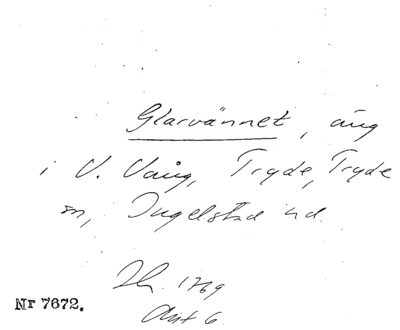 Glarvännet, äng
i V. Vång, Tryde, Tryde
sn, Ingelstad hd.
1769
Akt 6.
Nr 7672.